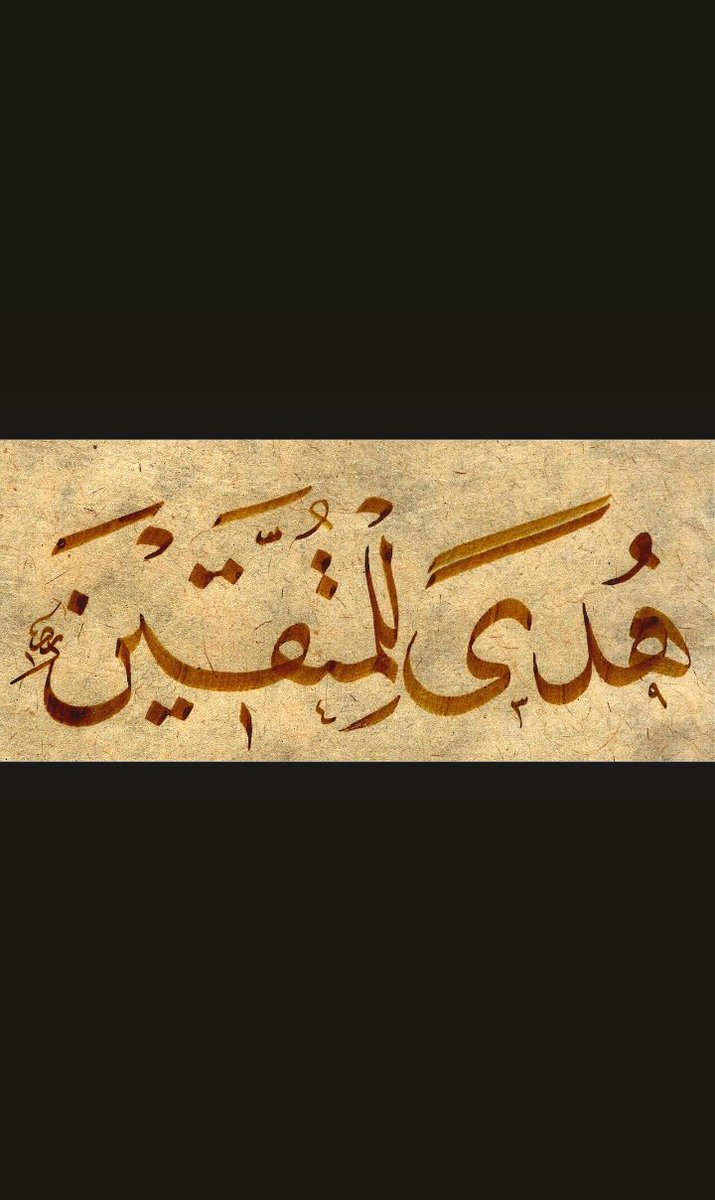 هُدًى لِلْمُتَّقِيْنَ